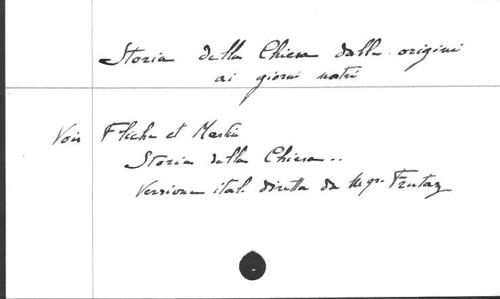 Storia della Chiesa dalle origini
ai giorni nostri
Voir Fliche et Martin
Storia della Chiesa..
Versione ital. diretta da Mgr. Frutaz